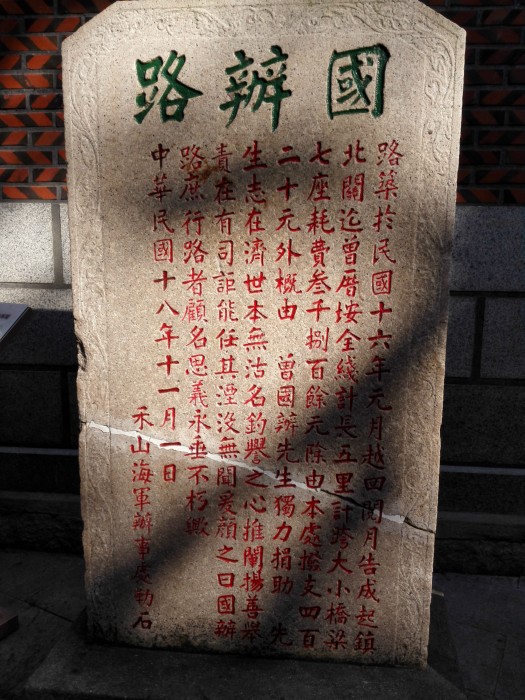 國辦路
路築於民國十六年元月越四閱月告成起鎮
北關迄曾厝垵全綫計長五里計跨大小橋梁
七座耗費叁千捌百餘元除由本處撥支四百
二十元外概由 曾國辦先生獨力捐助 先
生志在濟世本無沽名釣譽之心推闡揚善舉
責在有司詎能任其湮没無聞爰顏之曰國辦
路庶行路者顧名思義永垂不朽緻
中華民國十八年十一月一日
禾山海軍辦事處勒石